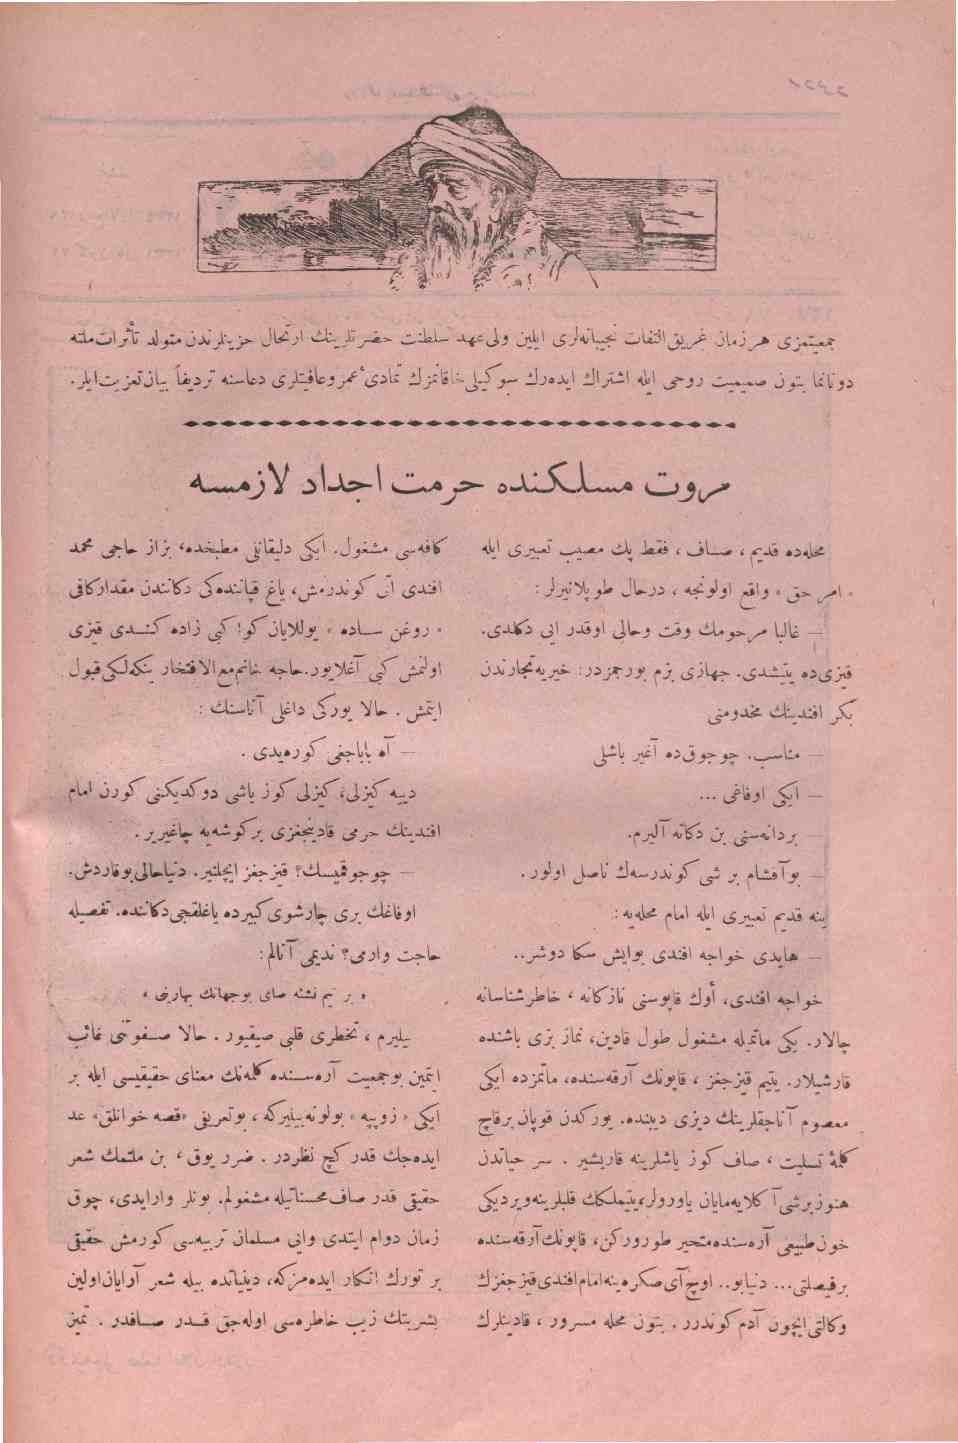 جمعیتمزی هر زمان غریق التفات نجیبانه‌لری ایلین ولی عهد سلطنت حضرتلرینك ارتحال حزینلرندن متولد تأثرات ملته
دونانما بتون صمیمیت روحی ایله اشتراك ایده‌رك سوکیلی خاقانمزك تمادیٔ عمر و عافیتلری دعاسنه تردیفاً بیان تعزیت ایلر.
مروت مسلكنده حرمت اجداد لازمسه
محله‌ده قدیم ، صاف ، فقط پك مصیب تعبیری ایله
« امر حق » واقع اولونجه ، درحال طوپلانیرلر :
— غالبا مرحومك وقت وحالی اوقدر ایی دكلدی.
قیزی‌ده یتیشدی. جهازی بزم بورجمزدر: خیریه تجارندن
بكر افندینك مخدومنی
— مناسب. چوجوق‌ده آغیر باشلی
— ایكی اوفاغی ...
— بردانه‌سنی بن دكانه آلیرم.
— بوآقشام بر شی كوندرسه‌ك ناصل اولور .
ینه قدیم تعبیری ایله امام محله‌یه :
— هایدی خواجه افندی بوایش سكا دوشر..
خواجه افندی، أوك قاپوسنی نازكانه ، خاطرشناسانه
چالار. یكی ماتمیله مشغول طول قادین، نماز بزی باشنده
قارشیلار. یتیم قیزجغز ، قاپونك آرقه‌سنده، ماتمزده ایكی
معصوم آناجقلرینك دیزی دیبنده. یوركدن قوپان برقاچ
كلمۀ تسلیت ، صاف كوز یاشلرینه قاریشیر . سر حیاتدن
هنوز برشی آكلایه‌مایان یاورولر، یتیملكك قلبلرینه ویردیكی
خون طبیعی آره‌سنده متحیر طورورکن، قاپونك آرقه‌سنده
برفیصلتی... دنیا بو.. اوچ آی صكره ینه امام افندی قیزجغزك
وكالتی ایچون آدم كوندرر . بتون محله مسرور ، قادینلرك
كافه‌سی مشغول. ایكی دلیقانلی مطبخده، بزاز حاجی محمد
افندی آتی كوندرمش، یاغ قپاننده‌كی دكانندن مقدار كافی
« روغن ساده » یوللایان كوا كبی زاده كندی قیزی
اولنمش كبی آغلایور. حاجه خانم مع‌الافتخار ینكه‌لكی قبول
ایتمش . حالا یوركی داغلی آناسنك :
— آه باباجغی كوره‌یدی .
دییه كیزلی، كیزلی كوز یاشی دوكدیكنی كورن امام
افندینك حرمی قادینجغزی بركوشه‌یه چاغیریر .
— چوجوقمیسك؟ قیزجغز ایچلنیر. دنیا حالی بو قاردش.
اوفاغك بری چارشوی كبیرده یاغلقجی دكاننده. تفصیله
حاجت وارمی؟ ندیمی آنالم :
« بر نیم نشئه صای بو جهانك بهارینی »
بیلیرم ، تخطری قلبی صیقیور . حالا صفوتنی غائب
ایتمین بو جمعیت آره‌سنده كلمه‌نك معنای حقیقیسی ایله بر
ایكی « زوپپه » بولونه‌بیلیركه ، بو تعریفی «قصه خوانلق» عد
ایده‌جك قدر كج نظردر . ضرر یوق ، بن ملتمك شعر
حقیقی قدر صاف محسناتیله مشغولم. بونلر وارایدی، چوق
زمان دوام ایتدی وایی مسلمان تربیه‌سی كورمش حقیقی
بر تورك انكار ایده‌مزكه، دینیاتده بیله شعر آرایان اولین
بشریتك زیب خاطره‌سی اوله‌جق قدر صافدر . تمیز